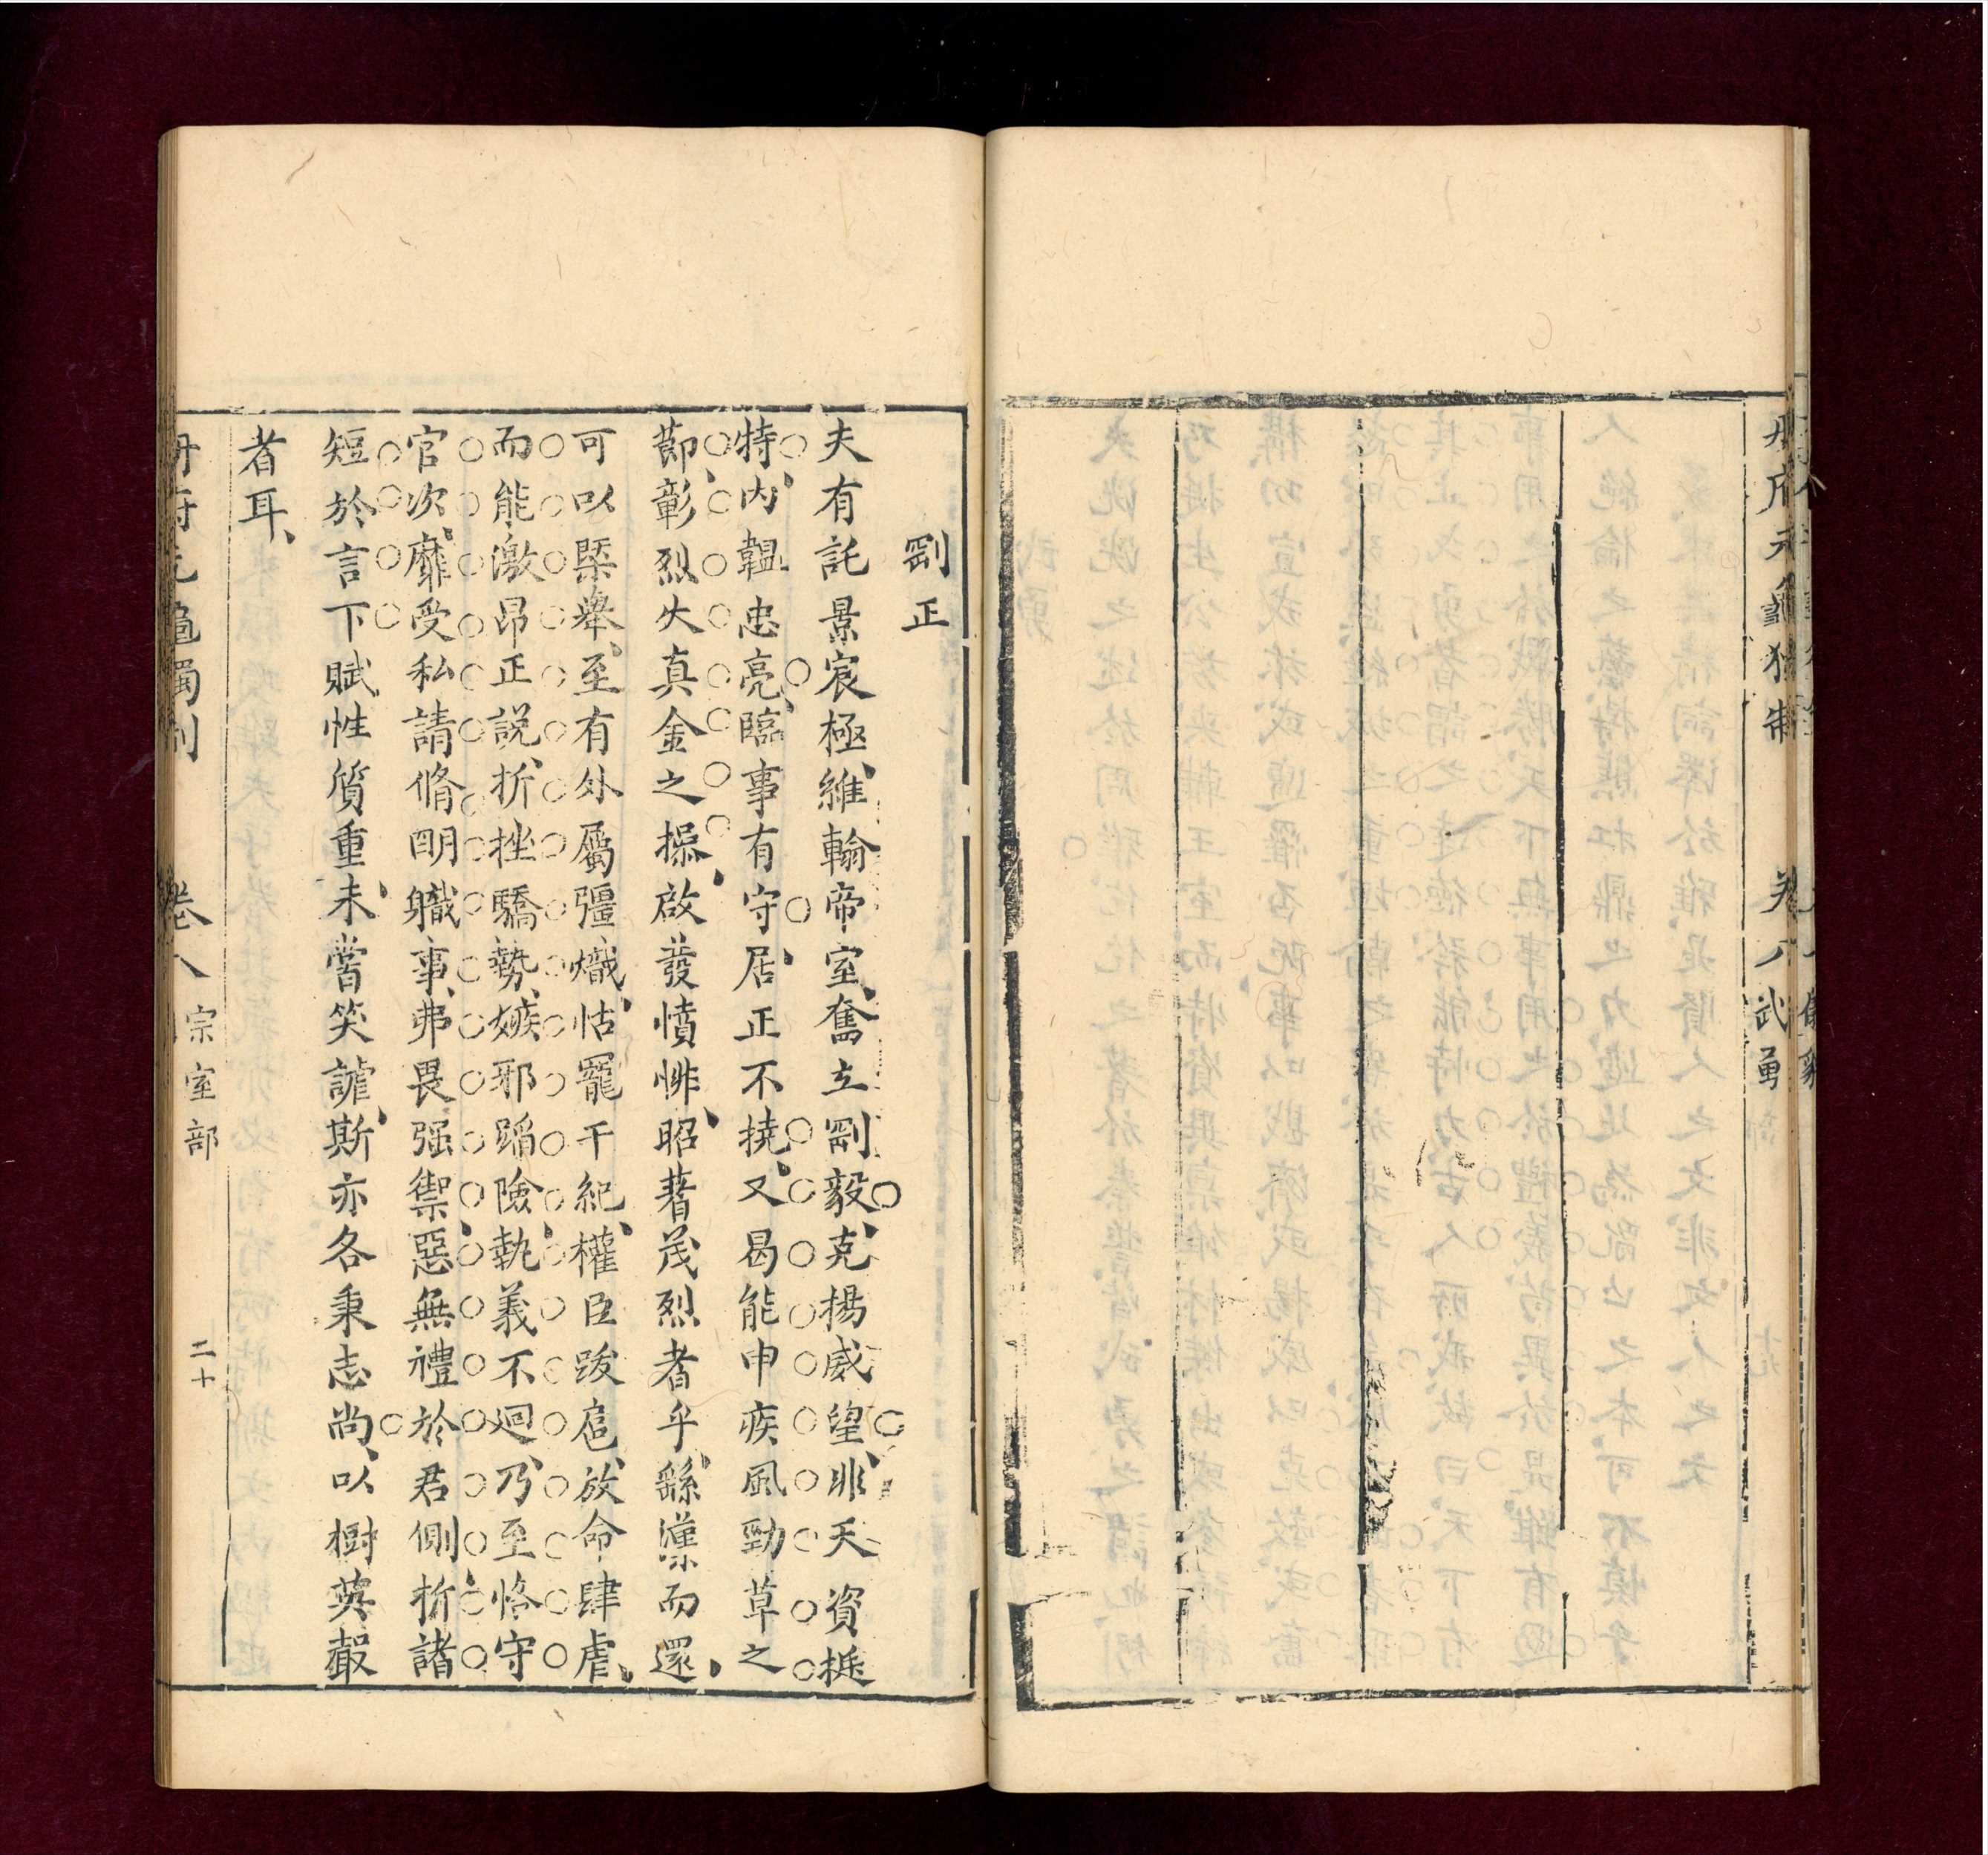 册府元龜獨制 卷八 武勇
剛正
夫有託景宸極、維翰帝室、奮立剛毅、克揚威望、非天資挺
特、內韞忠亮、臨事有守、居正不撓、又曷能申疾風勁草之
節、彰烈火真金之操、啟發憤悱、昭著茂烈者乎、繇漢而還、
可以槩舉、至有外屬彊熾、怙寵干紀、權臣跋扈、放命肆虐、
而能激昂正說、折挫驕勢、嫉邪蹈險、執義不迴、乃至恪守
官次、靡受私請、脩明職事、弗畏强禦、惡無禮於君側、折諸
短於言下、賦性質重、未嘗笑謔、斯亦各秉志尚、以樹英嚴
者耳、
册府元龜獨制 卷八 宗室部 二十